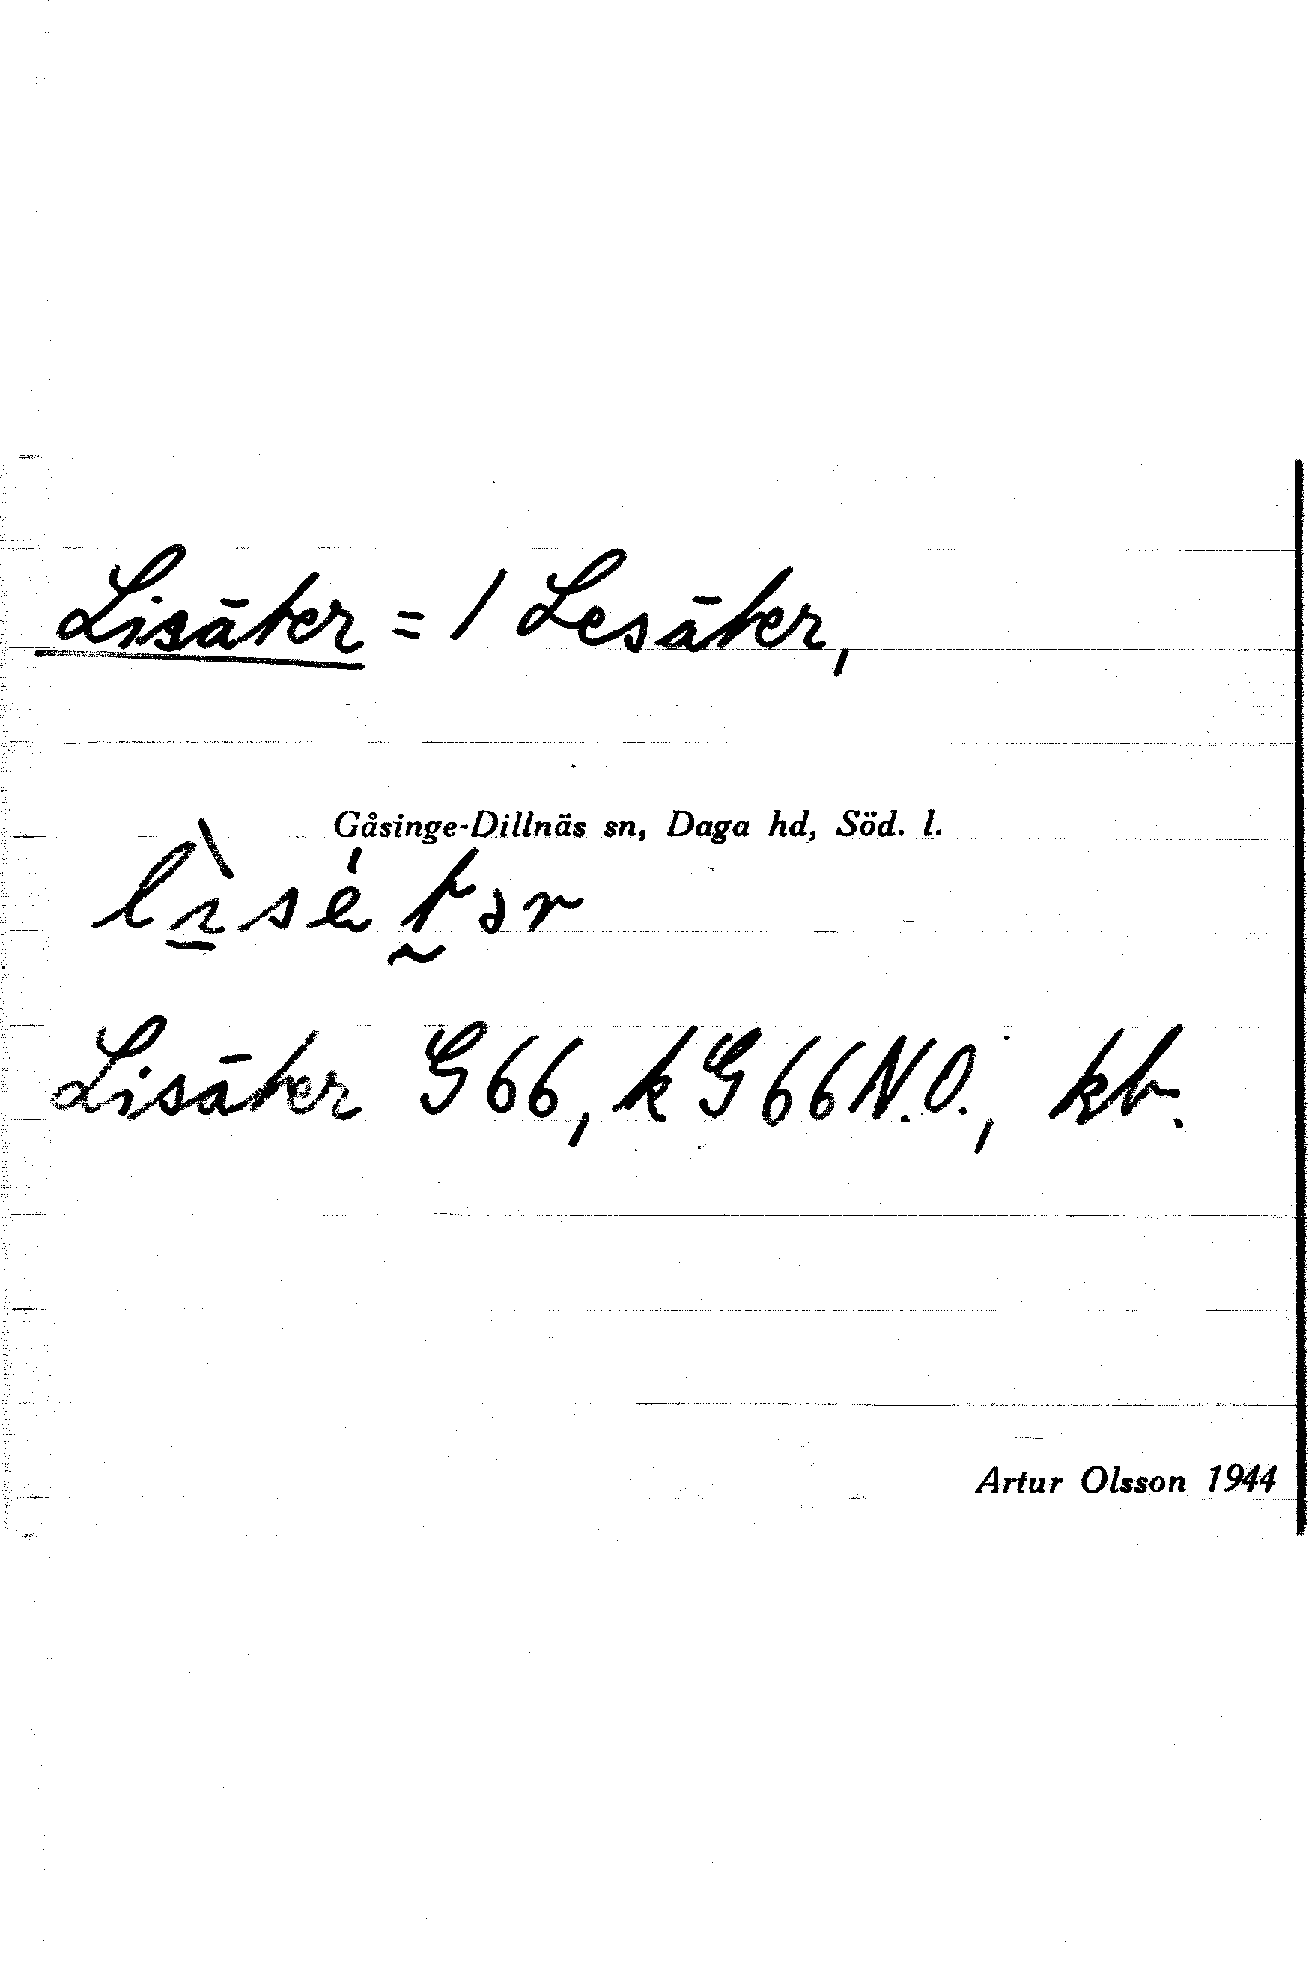 Lisäter = / Lesäter,
Gåsinge-Dillnäs sn, Daga hd, Söd. l.
Lisäter G 66, k G 66 N.O., kb.
Artur Olsson 1944